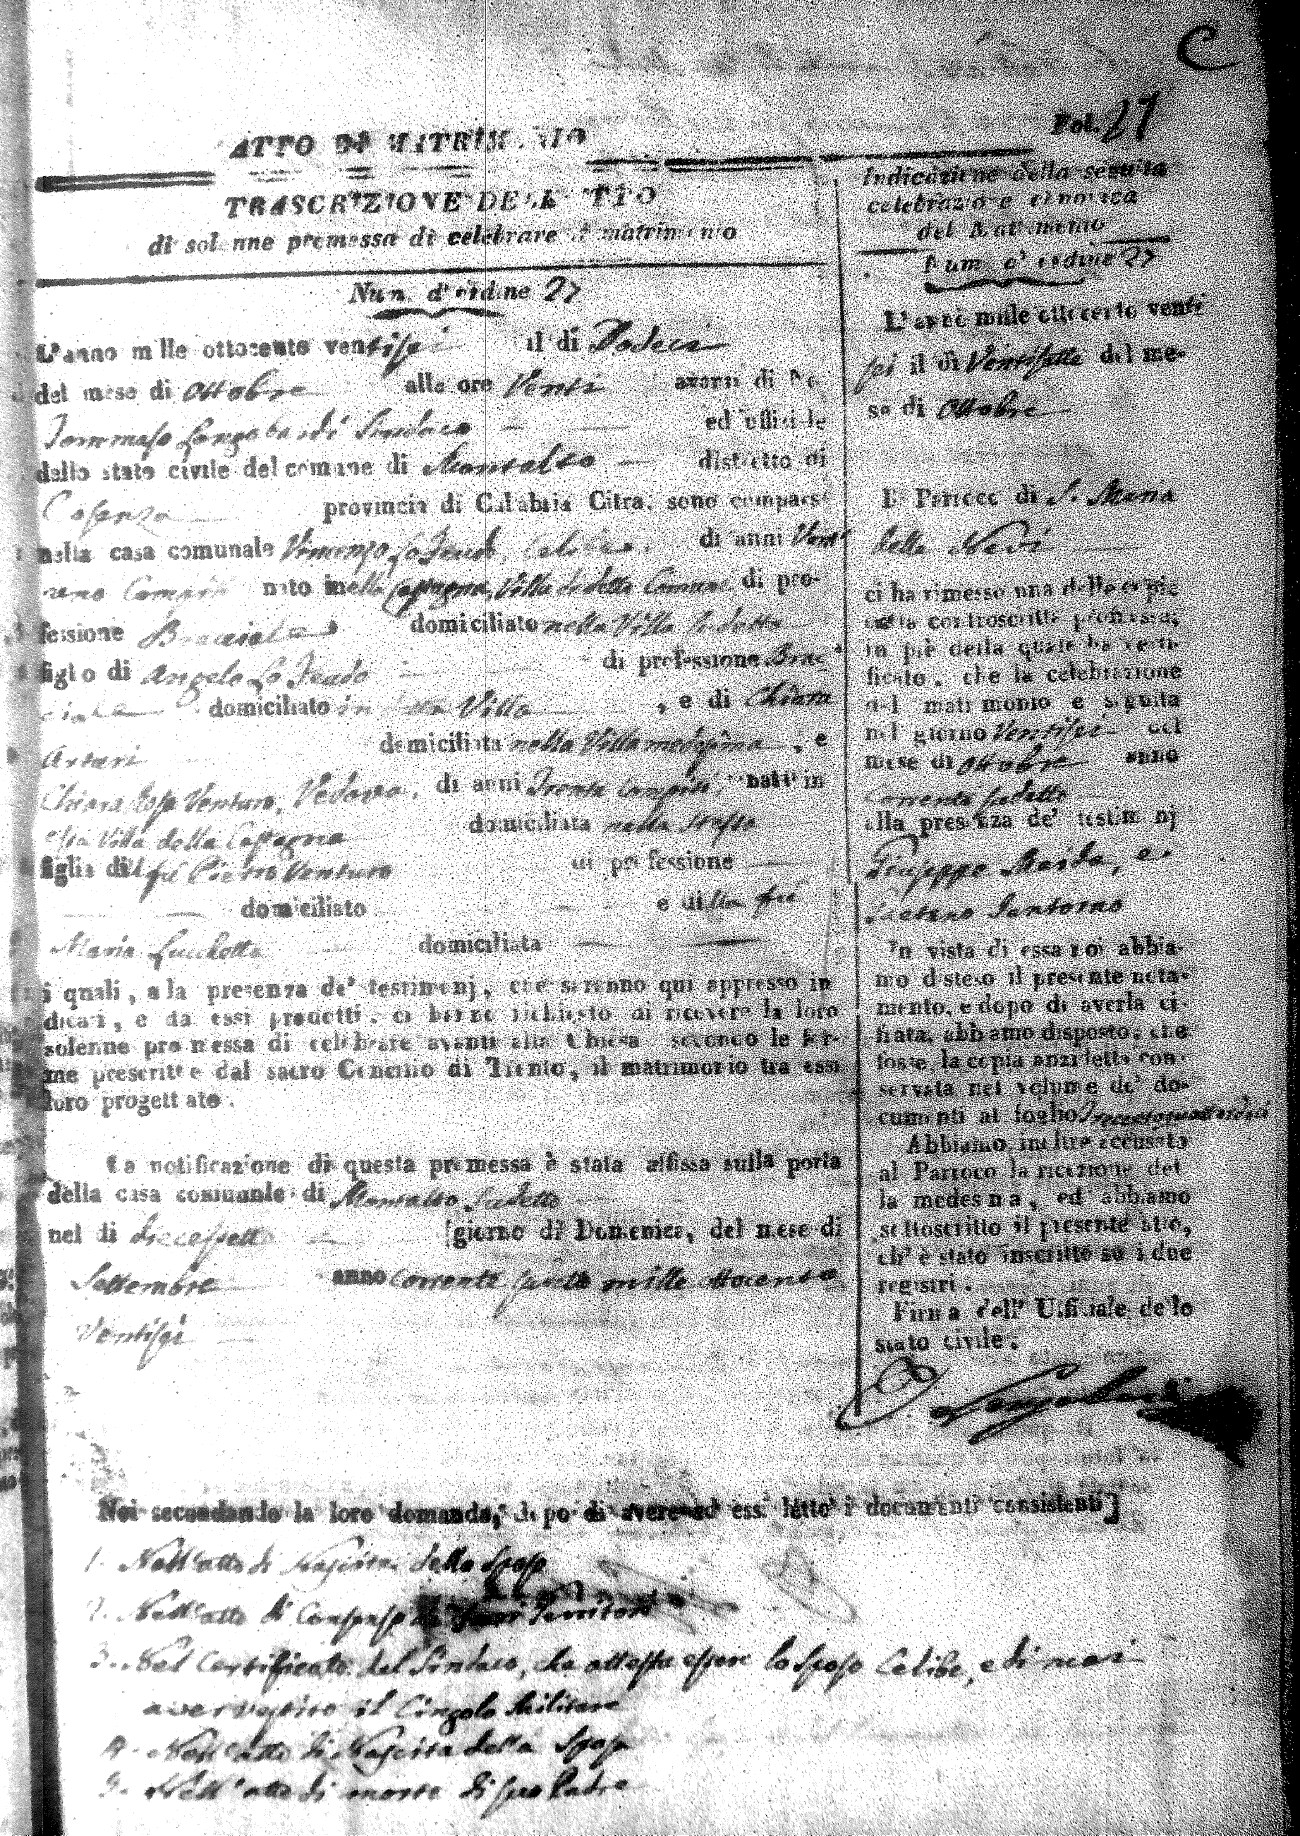 C
Fol. 27
ATTO DI MATRIMONIO
TRASCRIZIONE DELL'ATTO
di solenne promessa di celebrare il matrimonio
Num. d'ordine 27
L'anno mille ottocento ventisei il dì Dodeci
del mese di Ottobre alle ore Venti avanti di Noi
Tommaso Longobardi Sindaco ed uffiziale
dello stato civile del comune di Montalto distretto di
Cosenza provincia di Calabria Citra, sono comparsi
nella casa comunale Vincenzo Lo Feudo, Celibe, di anni Vent'
uno Compiti nato nella Villa di detto Comune di pro-
fessione Bracciale domiciliato nella Villa sudetta
figlio di Angelo Lo Feudo di professione Brac
ciale domiciliato in detta Villa , e di Chiara
Arturi domiciliata nella Villa medesima , e
Chiara Rosa Venturo, Vedova, di anni Trenta Compiti, nata in
Villa della domiciliata nella stessa
figlia del fu Pietro Venturo di professione
domiciliato e di fu
Maria domiciliata
i quali, alla presenza de' testimonj, che saranno qui appresso in
dicati, e da essi prodotti, ci hanno richiesto di ricevere la loro
solenne promessa di celebrare avanti alla Chiesa secondo le for-
me prescritte dal sacro Concilio di Trento, il matrimonio tra essi
loro progettato.
La notificazione di questa promessa è stata affissa sulla porta
della casa comunale di Montalto sudetto
nel dì diecessette giorno di Domenica, del mese di
Settembre anno corrente mille ottocento
Ventisei
Indicazione della seguita
celebrazione canonica
del Matrimonio
Num. d'ordine 27
L'anno mille ottocento venti
sei il dì Ventisette del me-
se di Ottobre
Il Parroco di S. Maria
della Neve
ci ha rimesso una delle copie
della controscritta promessa,
in piè della quale ha certi-
ficato, che la celebrazione
del matrimonio è seguita
nel giorno Ventisei del
mese di Ottobre anno
corrente sudetto
alla presenza de' testimonj
Giuseppe e
Gaetano Santorno
In vista di essa noi abbia-
mo disteso il presente nota-
mento, e dopo di averla ci-
frata, abbiamo disposto, che
fosse la copia anzidetta con-
servata nel volume de' do-
cumenti al foglio
Abbiamo inoltre accusata
al Parroco la ricezione del
la medesima, ed abbiamo
sottoscritto il presente atto,
ch'è stato inscritto su i due
registri.
Firma dell' Uffiziale dello
stato civile.
Longobardi
Noi secondando la loro domanda, dopo di avere ad essi letto i documenti consistenti]
1. Nell'atto di Nascita dello sposo
2. Nell'atto di Consenso de' suoi Genitori
3. Nel Certificato del Sindaco, che attesta essere lo sposo Celibe, e di mai
aver vestito il Cingolo Militare
4. Nell'atto di Nascita della Sposa
5. Nell'atto di morte di suo Padre